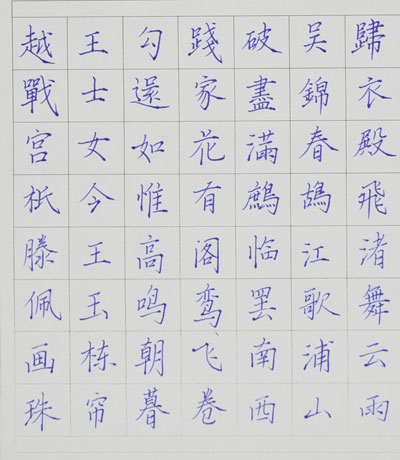 越王勾踐破吴歸
戰士還家盡錦衣
宫女如花滿春殿
祇今惟有鷓鴣飛
滕王高阁临江渚
佩玉鸣鸾罢歌舞
画栋朝飞南浦云
珠帘暮卷西山雨